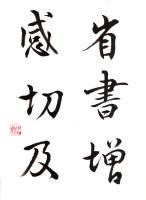 省書增
感切及